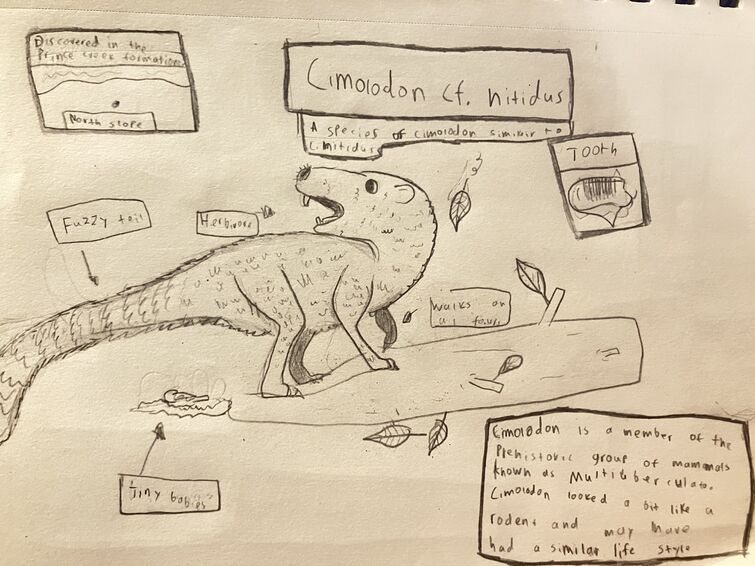 Discovered in the
Prince creek formation
North slope
Cimolodon cf. nitidus
A species of cimolodon similir to
C. nitidus
Tooth
Fuzzy tail
Herbivore
Walks on
all fours
Tiny babies
Cimolodon is a member of the
Prehistoric group of mammals
known as Multituberculata.
Cimolodon looked a bit like a
rodent and may have
had a similar life style